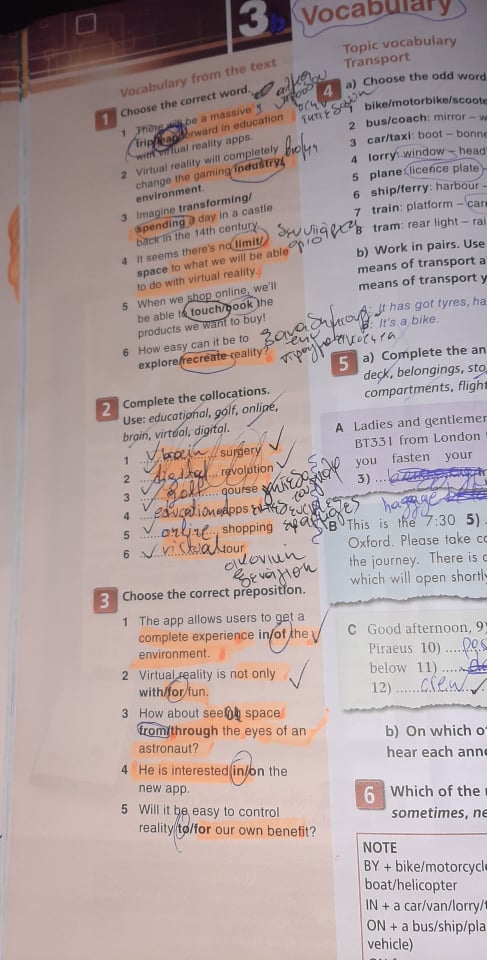 3b
Vocabulary
Vocabulary from the text
1 Choose the correct word.
1 There will be a massive
trip/leap forward in education
with virtual reality apps.
2 Virtual reality will completely
change the gaming industry/
environment.
3 Imagine transforming/
spending a day in a castle
back in the 14th century.
4 It seems there's no limit/
space to what we will be able
to do with virtual reality.
5 When we shop online, we'll
be able to touch/book the
products we want to buy!
6 How easy can it be to
explore/recreate reality?
2 Complete the collocations.
Use: educational, golf, online,
brain, virtual, digital.
1 brain surgery
2 digital revolution
3 golf course
4 educational apps
5 online shopping
6 virtual tour
εικονική
ξενάγηση
3 Choose the correct preposition.
1 The app allows users to get a
complete experience in/of the
environment.
2 Virtual reality is not only
with/for fun.
3 How about seeing space
from/through the eyes of an
astronaut?
4 He is interested in/on the
new app.
5 Will it be easy to control
reality to/for our own benefit?
Topic vocabulary
Transport
4 a) Choose the odd word
1 bike/motorbike/scoote
2 bus/coach: mirror – w
3 car/taxi: boot – bonne
4 lorry: window – head
5 plane: licence plate
6 ship/ferry: harbour –
7 train: platform – car
8 tram: rear light – rai
b) Work in pairs. Use
means of transport a
means of transport y
A: It has got tyres, ha
B: It's a bike.
5 a) Complete the an
deck, belongings, sto
compartments, flight
A Ladies and gentlemen
BT331 from London
you fasten your
3)
B This is the 7:30 5)
Oxford. Please take c
the journey. There is
which will open shortly
C Good afternoon, 9)
Piraeus 10)
below 11)
12) crew
b) On which o
hear each anno
6 Which of the
sometimes, ne
NOTE
BY + bike/motorcycle
boat/helicopter
IN + a car/van/lorry/t
ON + a bus/ship/pla
vehicle)